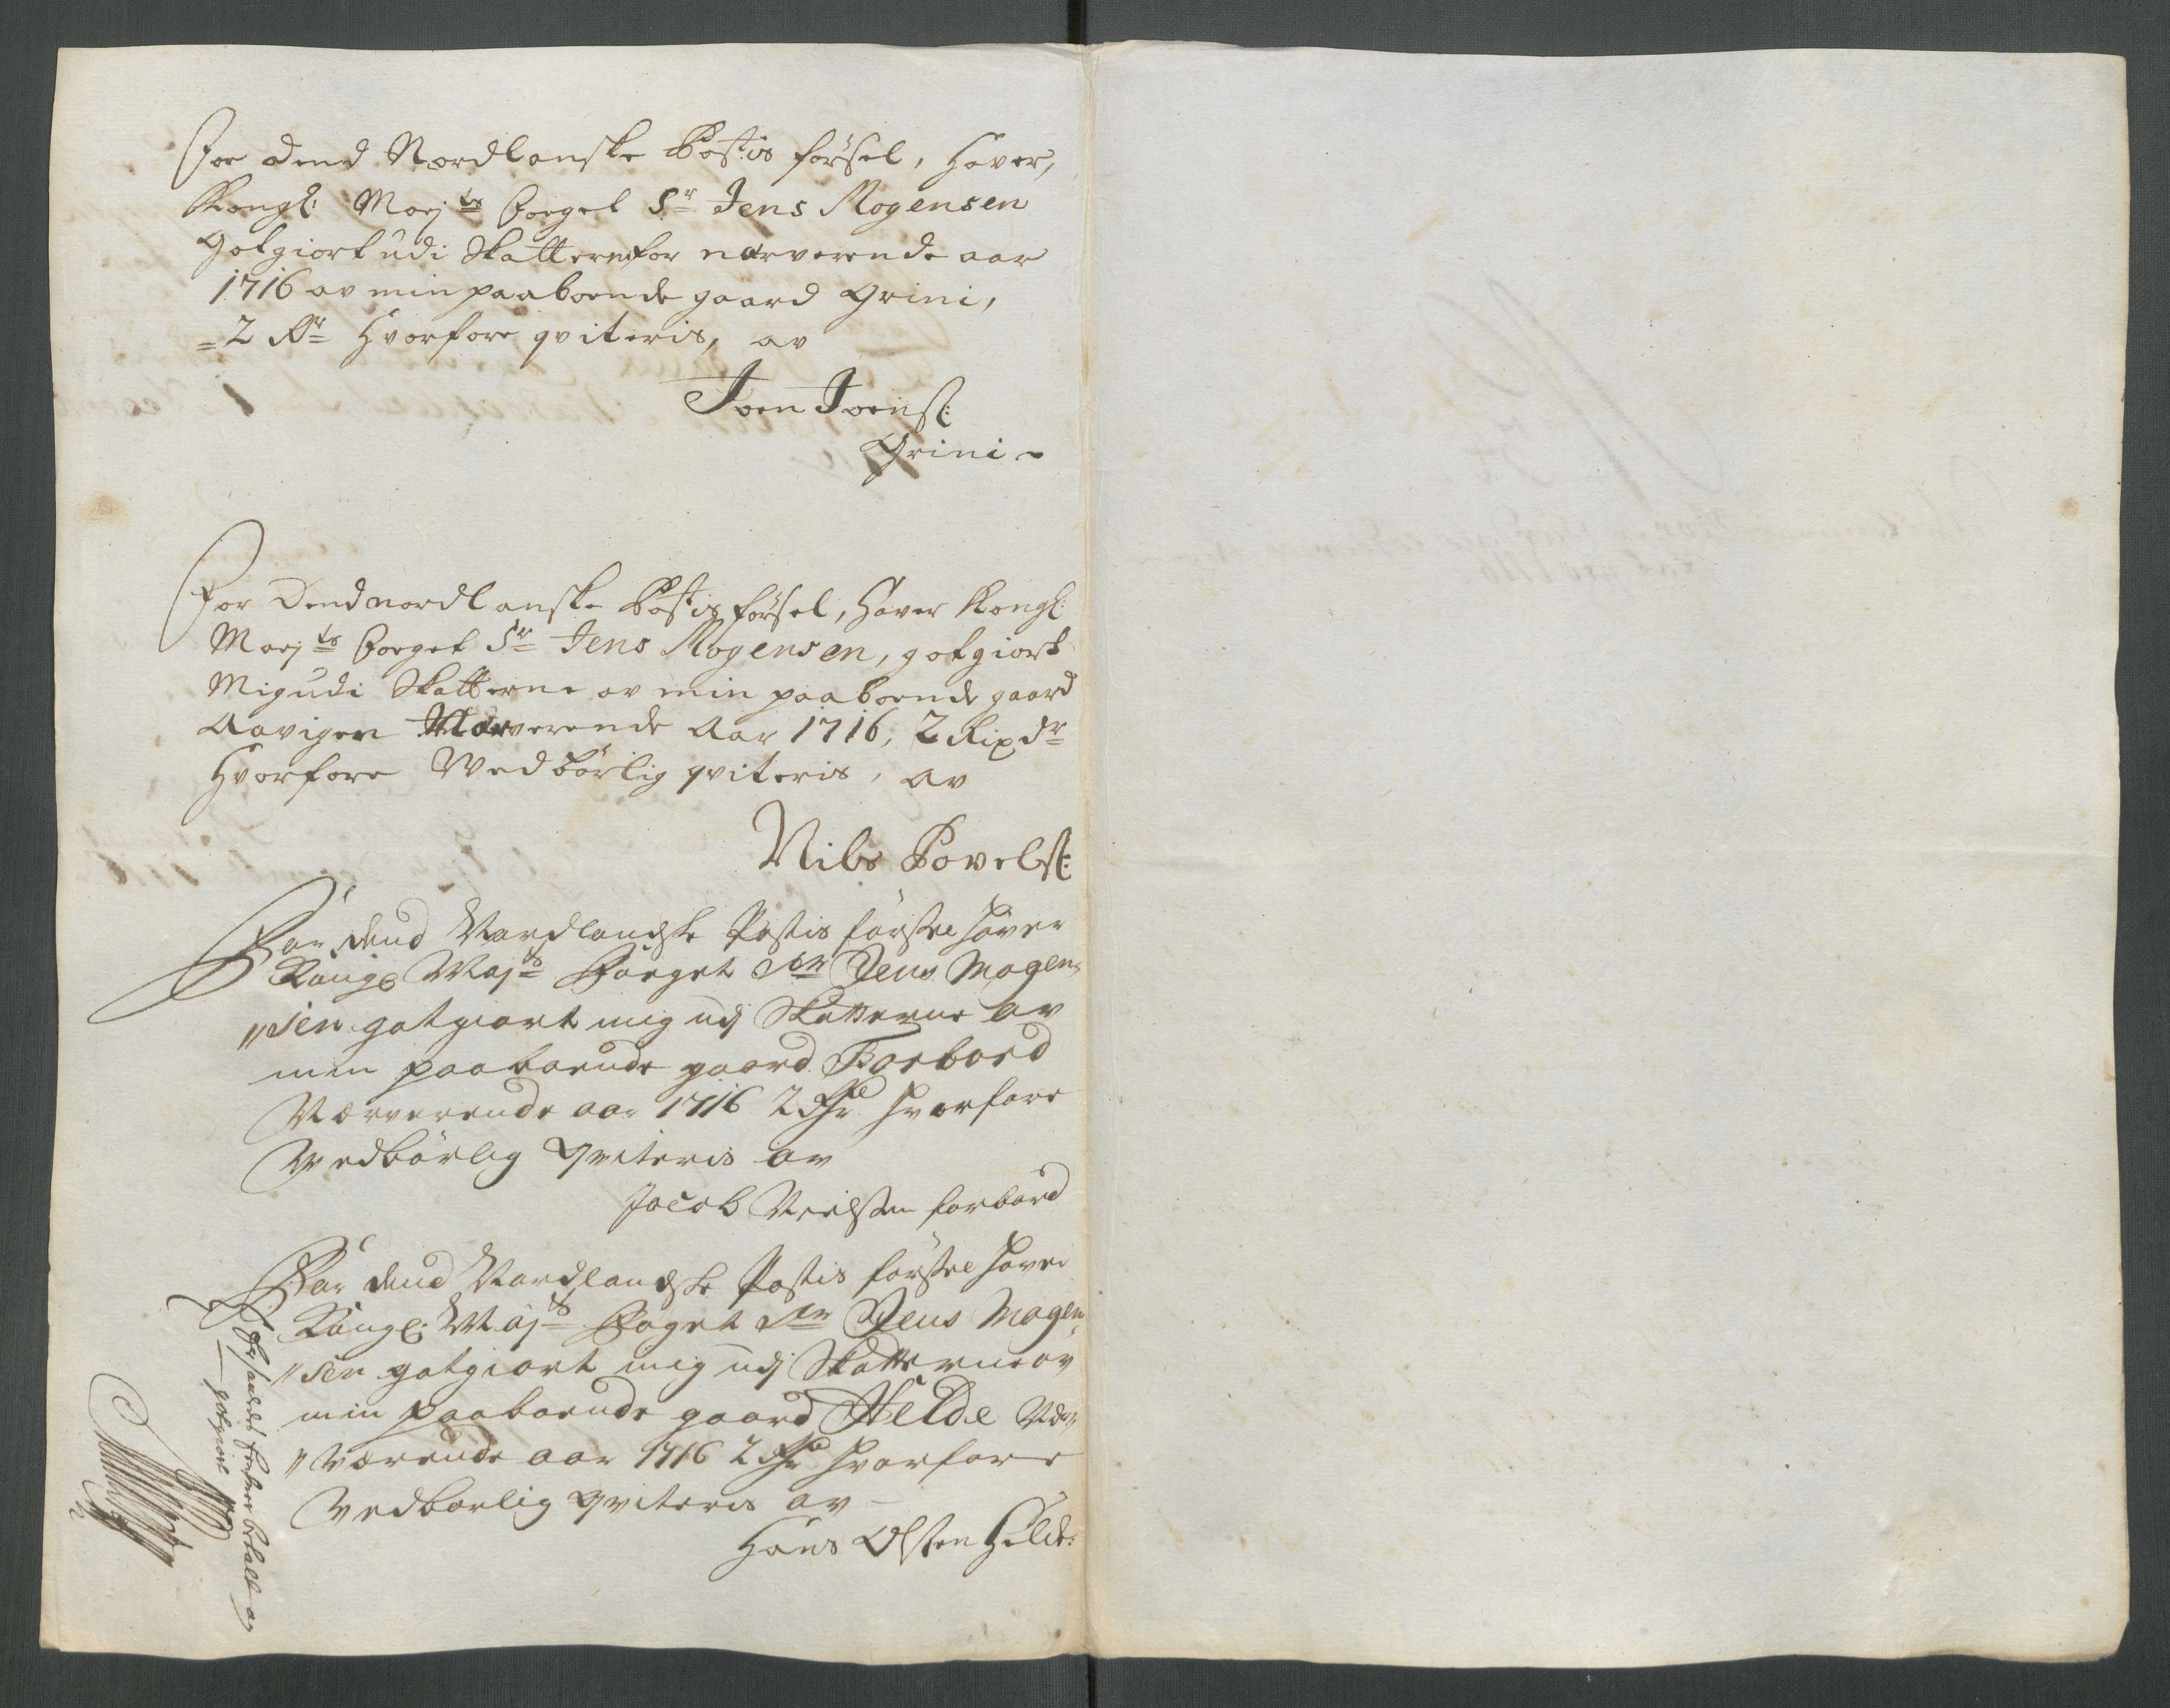 For dend Nordlanske Postis försel, haver,
Kongl: Maj:ts Foeget Sr Jens Mogensen
gotgiort udi Skatterne for nærverende aar
1716 av min paaboende gaard Grini,
= 2 Rdr hvorfore qviteris, av
Joen Joens:
Grini -
For Dend nordlanske Postis försel, haver Kongl:
Maj:ts Foeget Sr Jens Mogensen, gotgiort
Mig udi Skatterne av min paaboende gaard
Aavigen Nærverende Aar 1716, 2 Rixdr
hvorfore Wedbörlig qviteris, av
Nils Povels:
For dend Nordlandske Postis förssel haver
Kongl Maj:ts Foeget Sr Jens Mogen,,
,,sen gotgiort mig udj Skatterne av
min paaboende gaard Forbord
Nærverende aar 1716 2 Rdr hvorfore
Vedbörlig Qviteris av
Jacob Nielssen forbord
For dend Nordlandske Postis förssel haver
Kongl: Maj:ts Foget Sr Jens Mogen,,
,,sen gotgiort mig udj Skatterne av
min paaboende gaard Helde Nær,,
,,værende aar 1716 2 Rdr hvorfore
Vedborlig Qviteris av -
Hans Olssen Helde:
betalt og
gotgiort